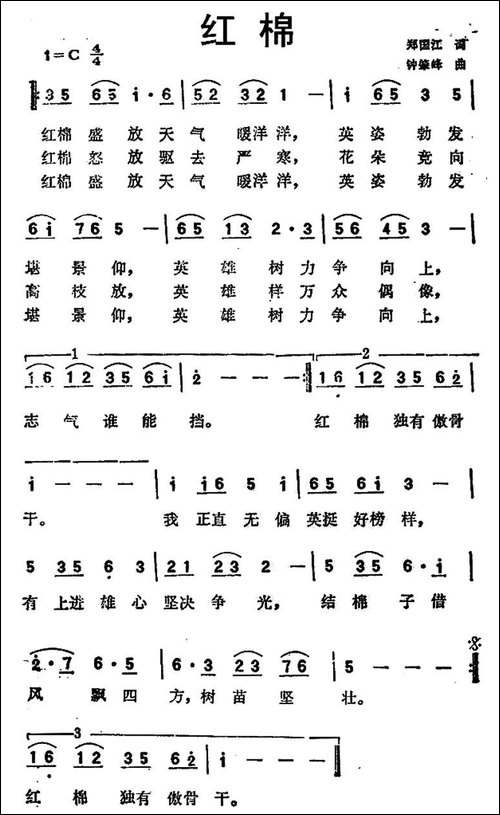 红棉
1=C 4/4
郑国江 词
钟肇峰 曲
35 65 i·6 | 52 321 — | i 65 3 5
红棉 盛 放 天 气 暖洋 洋, 英 姿 勃 发
红棉 怒 放 驱 去 严 寒, 花 朵 竞 向
红棉 盛 放 天 气 暖洋 洋, 英 姿 勃 发
6i 765 — | 65 13 2·3 | 56 453 — |
堪 景 仰, 英 雄 树 力 争 向 上,
高 枝 放, 英 雄 样 万 众 偶 像,
堪 景 仰, 英 雄 树 力 争 向 上,
1 2
i6 12 35 6i | 2 — — — :| 16 12 35 62 |
志 气 谁 能 挡。 红 棉 独有 傲骨
i — — — | i i6 5 i | 65 6i 3 — |
干。 我 正直 无 偏 英挺 好榜 样,
5 35 6 3 | 21 23 2 — | 5 35 6·i |
有 上进 雄 心 坚决 争 光, 结 棉 子 借
2·7 6·5 | 6·3 23 76 | 5 — — — :|
风 飘 四 方, 树 苗 坚 壮。
3
16 12 35 62 | i — — — |
红 棉 独有 傲骨 干。